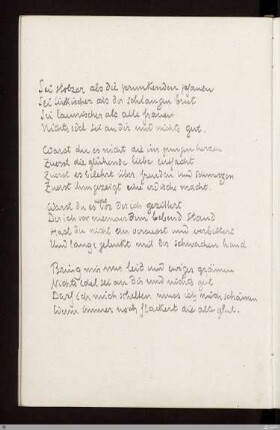 Sei stolzer als die prunkenden pfauen
Sei tückischer als der schlangen brut
Sei launischer als alle frauen
Nichts edel sei an dir und nichts gut.
Warst du es nicht die im jungen herzen
Zuerst die glühende liebe entfacht
Zuerst es belehrt über freuden und schmerzen
Zuerst ihm gezeigt eine irdische macht.
Warst du es nicht vor der ich gezittert
Der ich vor niemandem bebend stand
Hast du nicht ihn zuerst und verbittert
Und lange gelenkt mit der schwachen hand
Bring mir nur leid und ewiges grämen
Nichts edel sei an dir und nichts gut
Darf ich mich schelten muss ich mich schämen
Wenn immer noch flackert die alte glut.